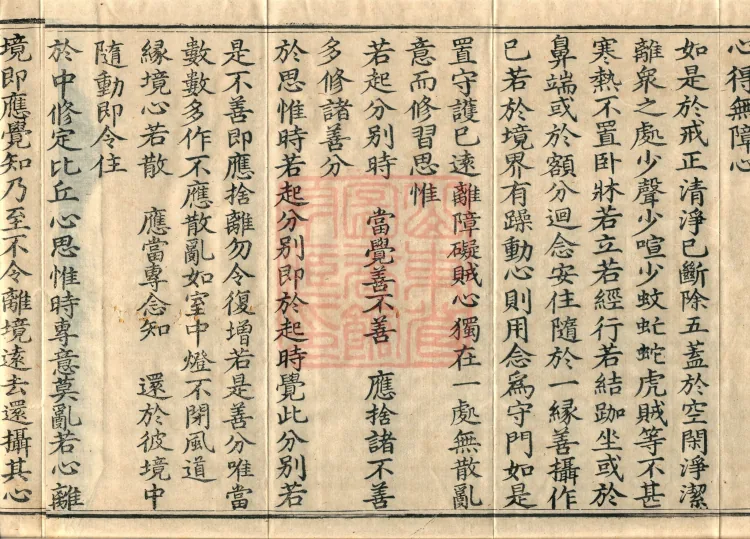 心得無障心
如是於戒正清淨已斷除五蓋於空閑淨潔
離衆之處少聲少喧少蚊虻蛇虎賊等不甚
寒熱不置卧牀若立若經行若結跏坐或於
鼻端或於額分迴念安住隨於一縁善攝作
已若於境界有躁動心則用念爲守門如是
置守護已遠離障礙賊心獨在一處無散亂
意而修習思惟
若起分別時　當覺善不善　應捨諸不善
多修諸善分
於思惟時若起分別即於起時覺此分別若
是不善即應捨離勿令復增若是善分唯當
數數多作不應散亂如室中燈不閉風道
縁境心若散　應當專念知　還於彼境中
隨動即令住
於中修定比丘心思惟時專意莫亂若心離
境即應覺知乃至不令離境遠去還攝其心